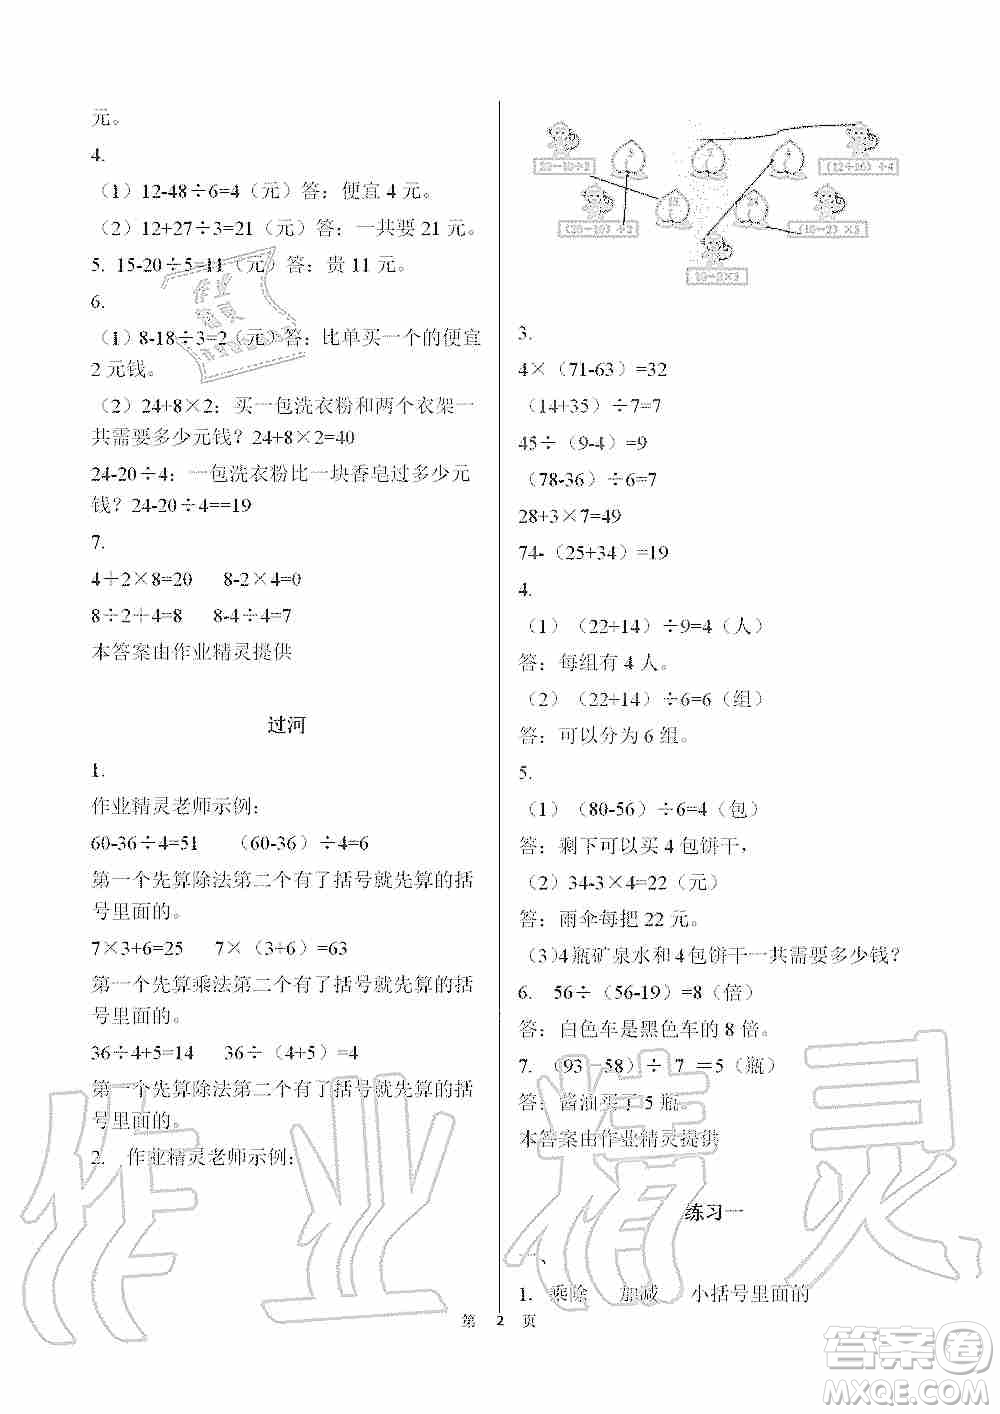 元。
4.
（1）12-48÷6=4（元）答：便宜 4 元。
（2）12+27÷3=21（元）答：一共要 21 元。
5. 15-20÷5=11（元）答：贵 11 元。
6.
（1）8-18÷3=2（元）答：比单买一个的便宜
2 元钱。
（2）24+8×2：买一包洗衣粉和两个衣架一
共需要多少元钱？24+8×2=40
24-20÷4：一包洗衣粉比一块香皂过多少元
钱？24-20÷4==19
7.
4+2×8=20 8-2×4=0
8÷2+4=8 8-4÷4=7
本答案由作业精灵提供
过河
1.
作业精灵老师示例：
60-36÷4=51 （60-36）÷4=6
第一个先算除法第二个有了括号就先算的括
号里面的。
7×3+6=25 7×（3+6）=63
第一个先算乘法第二个有了括号就先算的括
号里面的。
36÷4+5=14 36÷（4+5）=4
第一个先算除法第二个有了括号就先算的括
号里面的。
2. 作业精灵老师示例：
3.
4×（71-63）=32
（14+35）÷7=7
45÷（9-4）=9
（78-36）÷6=7
28+3×7=49
74-（25+34）=19
4.
（1）（22+14）÷9=4（人）
答：每组有 4 人。
（2）（22+14）÷6=6（组）
答：可以分为 6 组。
5.
（1）（80-56）÷6=4（包）
答：剩下可以买 4 包饼干，
（2）34-3×4=22（元）
答：雨伞每把 22 元。
（3）4瓶矿泉水和 4 包饼干一共需要多少钱？
6. 56÷（56-19）=8（倍）
答：白色车是黑色车的 8 倍。
7. （93－58）÷ 7 ＝5（瓶）
答：酱油买了 5 瓶。
本答案由作业精灵提供
练习一
一、
1. 乘除 加减 小括号里面的
第 2 页
作业精灵
答案圈
MXQE.COM